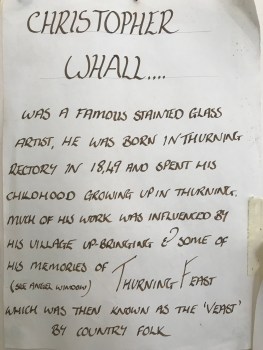 CHRISTOPHER
WHALL....
WAS A FAMOUS STAINED GLASS
ARTIST, HE WAS BORN IN THURNING
RECTORY IN 1849 AND SPENT HIS
CHILDHOOD GROWING UP IN THURNING.
MUCH OF HIS WORK WAS INFLUENCED BY
HIS VILLAGE UP-BRINGING & SOME OF
HIS MEMORIES OF THURNING FEAST
(SEE ANGEL WINDOW)
WHICH WAS THEN KNOWN AS THE 'VEAST'
BY COUNTRY FOLK